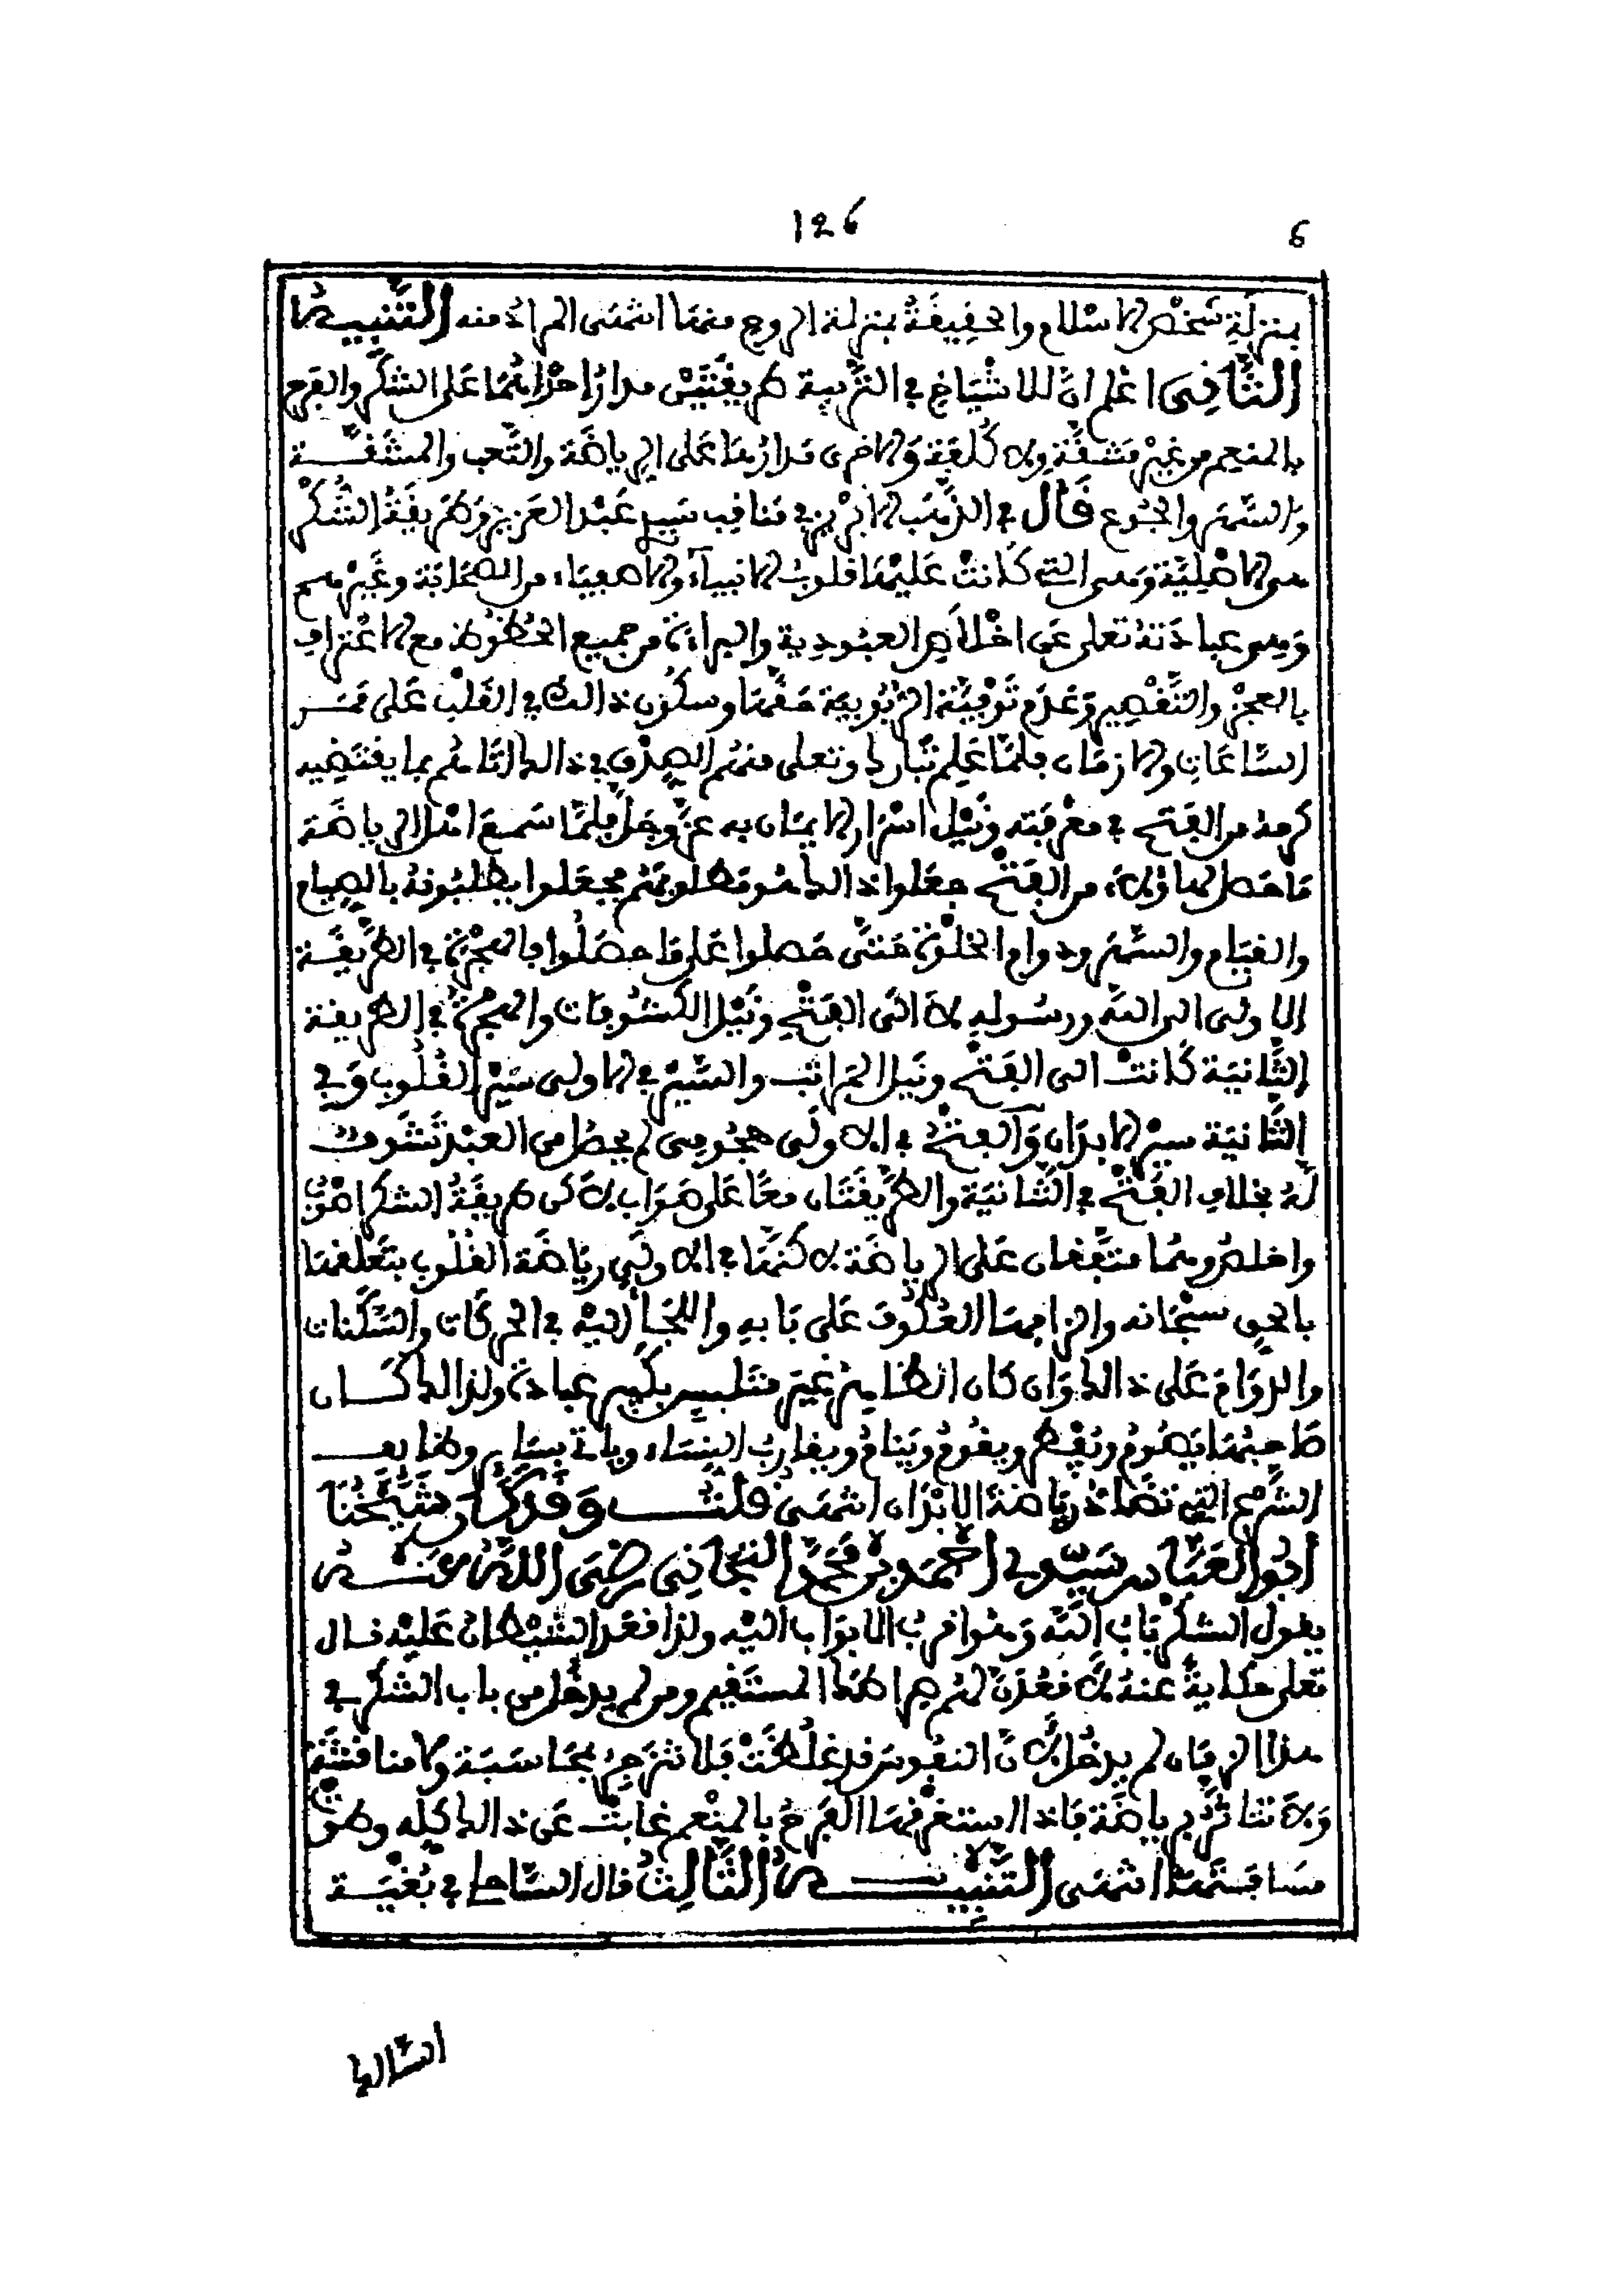 126
6
بمنزلة شخص الاسلام والحقيقة بمنزلة الروح منها انتهى المراد منه التنبيه
الثاني اعلم ان للاشياخ في التربية طريقتين مدار احداهما على الشكر والفرح
بالمنعم من غير مشقة ولا كلفة والاخرى مدارها على الرياضة والتعب والمشقة
والسهر والجوع قال في الذهب الابريز في مناقب سيدي عبد العزيز وطريقة الشكر
هي الاصلية وهي التي كانت عليها قلوب الانبياء والاصفياء من الصحابة وغيرهم
وهي عبادته تعلى على اخلاص العبودية والبراءة من جميع الحظوظ مع الاعتراف
بالعجز والتقصير وعدم توفية الربوبية حقها وسكون ذالك في القلب على ممر
الساعات والازمان فلما علم تبارك وتعلى منهم الصدق في ذالك اثابهم بما يقتضيه
كرمه من الفتح في معرفته ونيل اسرار الايمان به عز وجل فلما سمع اهل الرياضة
ما حصل لهاؤلاء من الفتح جعلوا ذالك هو مطلوبهم فجعلوا يطلبونه بالصيام
والقيام والسهر ودوام الخلوة حتى حصلوا على ما حصلوا فالهجرة في الطريقة
الاولى الى الله ورسوله لا الى الفتح ونيل الكشوفات والهجرة في الطريقة
الثانية كانت الى الفتح ونيل المراتب والسير في الاولى سير القلوب وفي
الثانية سير الابدان والفتح في الاولى هجومي لم يحصل من العبد تشوف
له بخلاف الفتح في الثانية والطريقتان معا على صواب لاكن طريقة الشكر اصوب
واخلص وهما متفقتان على الرياضة لاكنها في الاولى رياضة القلوب بتعلقها
بالحق سبحانه والزامها العكوف على بابه واللجأ اليه في الحركات والسكنات
والدوام على ذالك وان كان الظاهر غير متلبس بكبير عبادة ولذالك كان
صاحبها يصوم ويفطر ويقوم وينام ويقارب النساء وياتي بسائر وظائف
الشرع التي تضاد رياضة الابدان انتهى قلت وقد كان شيخنا
ابو العباس سيدي احمد بن محمد التجاني رضي الله عنه
يقول الشكر باب الله وهو اقرب الابواب اليه ولذا قعد الشيطان عليه قال
تعلى حكاية عنه لاقعدن لهم صراطك المستقيم ومن لم يدخل من باب الشكر في
هذا الزمان لم يدخل لان النفوس قد غلظت فلا تنزجر بمحاسبة ولا مناقشة
ولا تتاثر برياضة فاذا استغرقها الفرح بالمنعم غابت عن ذالك كله وطوت
مسافتها انتهى التنبيه الثالث قال الساحلي في بغية
السالك